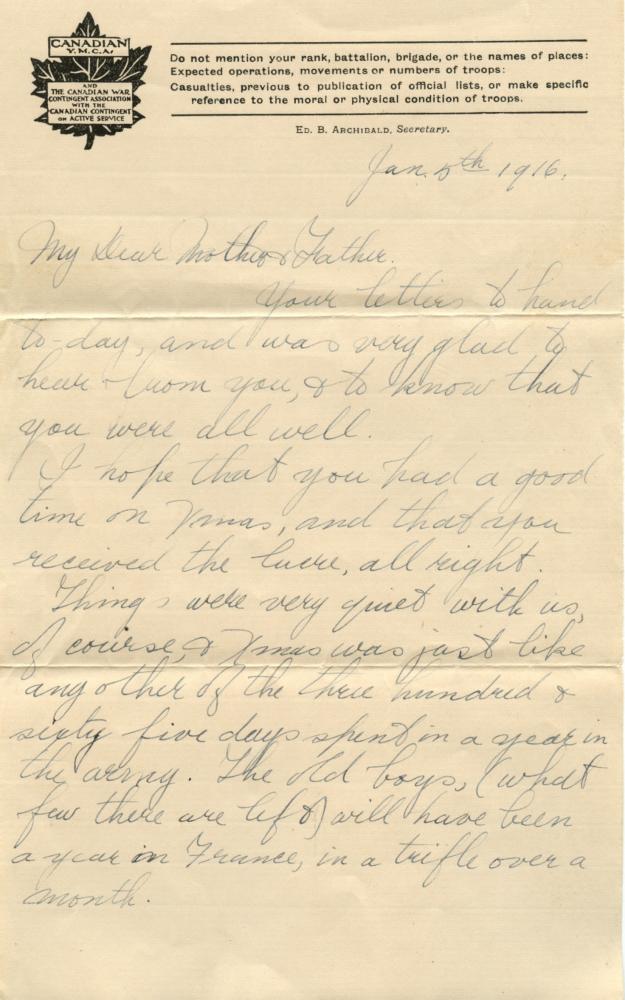 CANADIAN
Y.M.C.A.
AND
THE CANADIAN WAR
CONTINGENT ASSOCIATION
WITH THE
CANADIAN CONTINGENT
ON ACTIVE SERVICE
Do not mention your rank, battalion, brigade, or the names of places:
Expected operations, movements or numbers of troops:
Casualties, previous to publication of official lists, or make specific
reference to the moral or physical condition of troops.
ED. B. ARCHIBALD, Secretary.
Jan. 5th 1916.
My Dear Mother & Father.
Your letters to hand
to-day, and was very glad to
hear from you, & to know that
you were all well.
I hope that you had a good
time on Xmas, and that you
received the lucre, all right.
Things were very quiet with us,
of course, & Xmas was just like
any other of the three hundred &
sixty five days spent in a year in
the army. The old boys, (what
few there are left) will have been
a year in France, in a trifle over a
month.